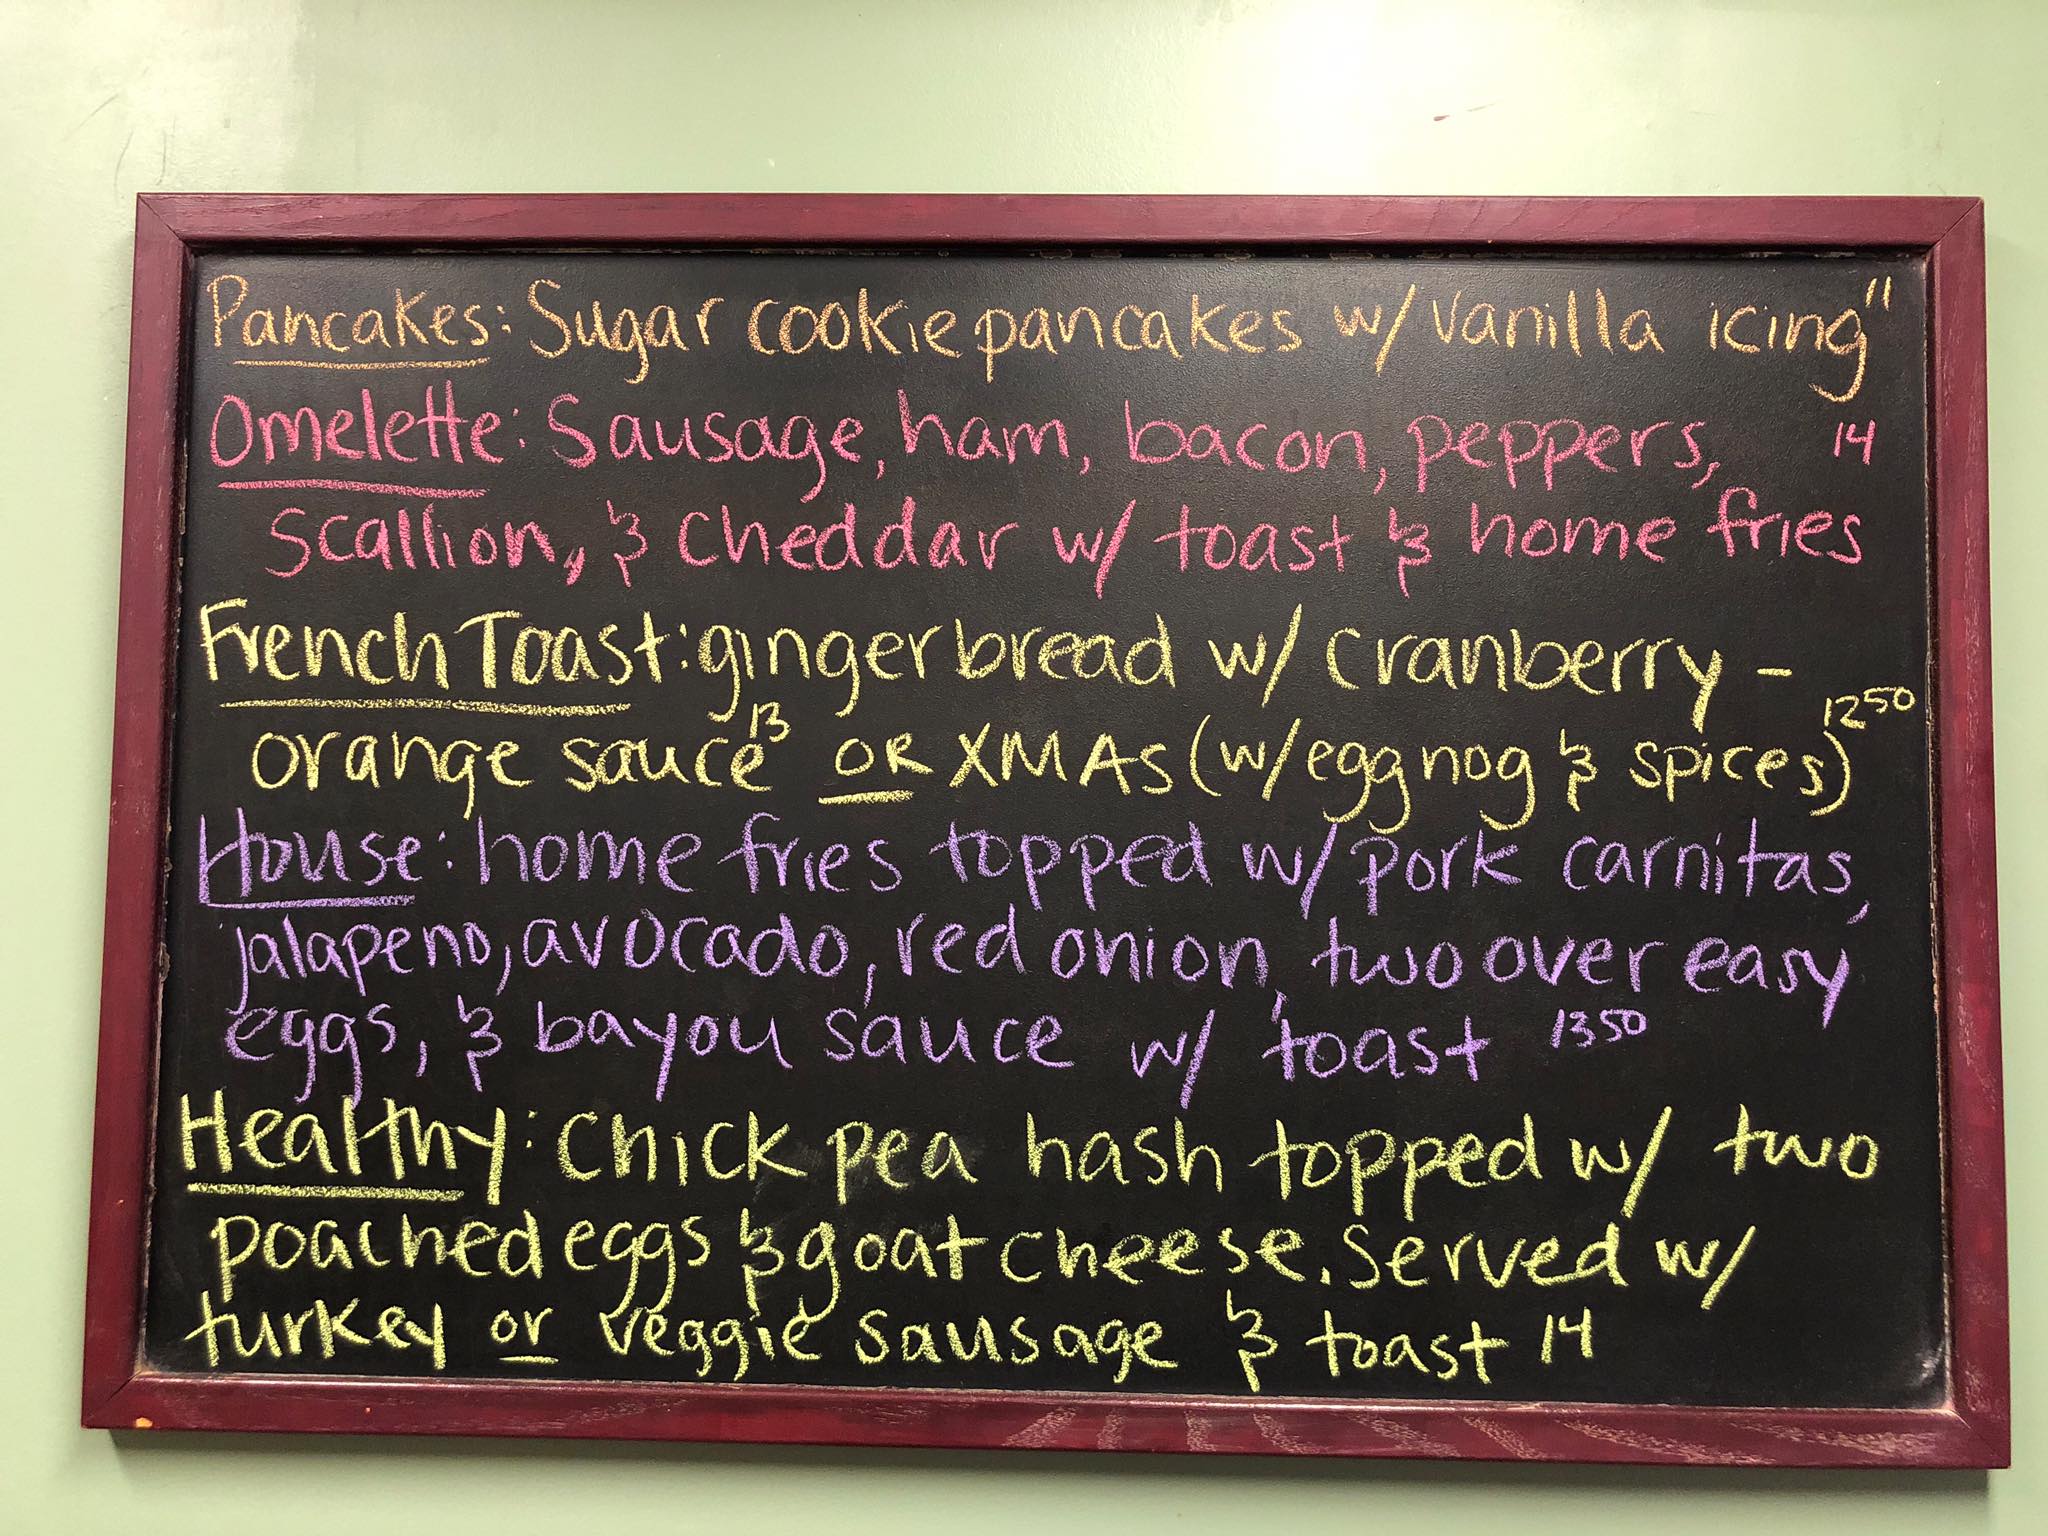 Pancakes: Sugar cookie pancakes w/ vanilla icing 11
Omelette: Sausage, ham, bacon, peppers, 14
scallion, & cheddar w/ toast & home fries
French Toast: gingerbread w/ cranberry -
orange sauce 13 OR XMAS (w/ eggnog & spices) 12 50
House: home fries topped w/ pork carnitas,
jalapeno, avocado, red onion, two over easy
eggs, & bayou sauce w/ toast 13 50
Healthy: chick pea hash topped w/ two
poached eggs & goat cheese. Served w/
turkey or veggie sausage & toast 14